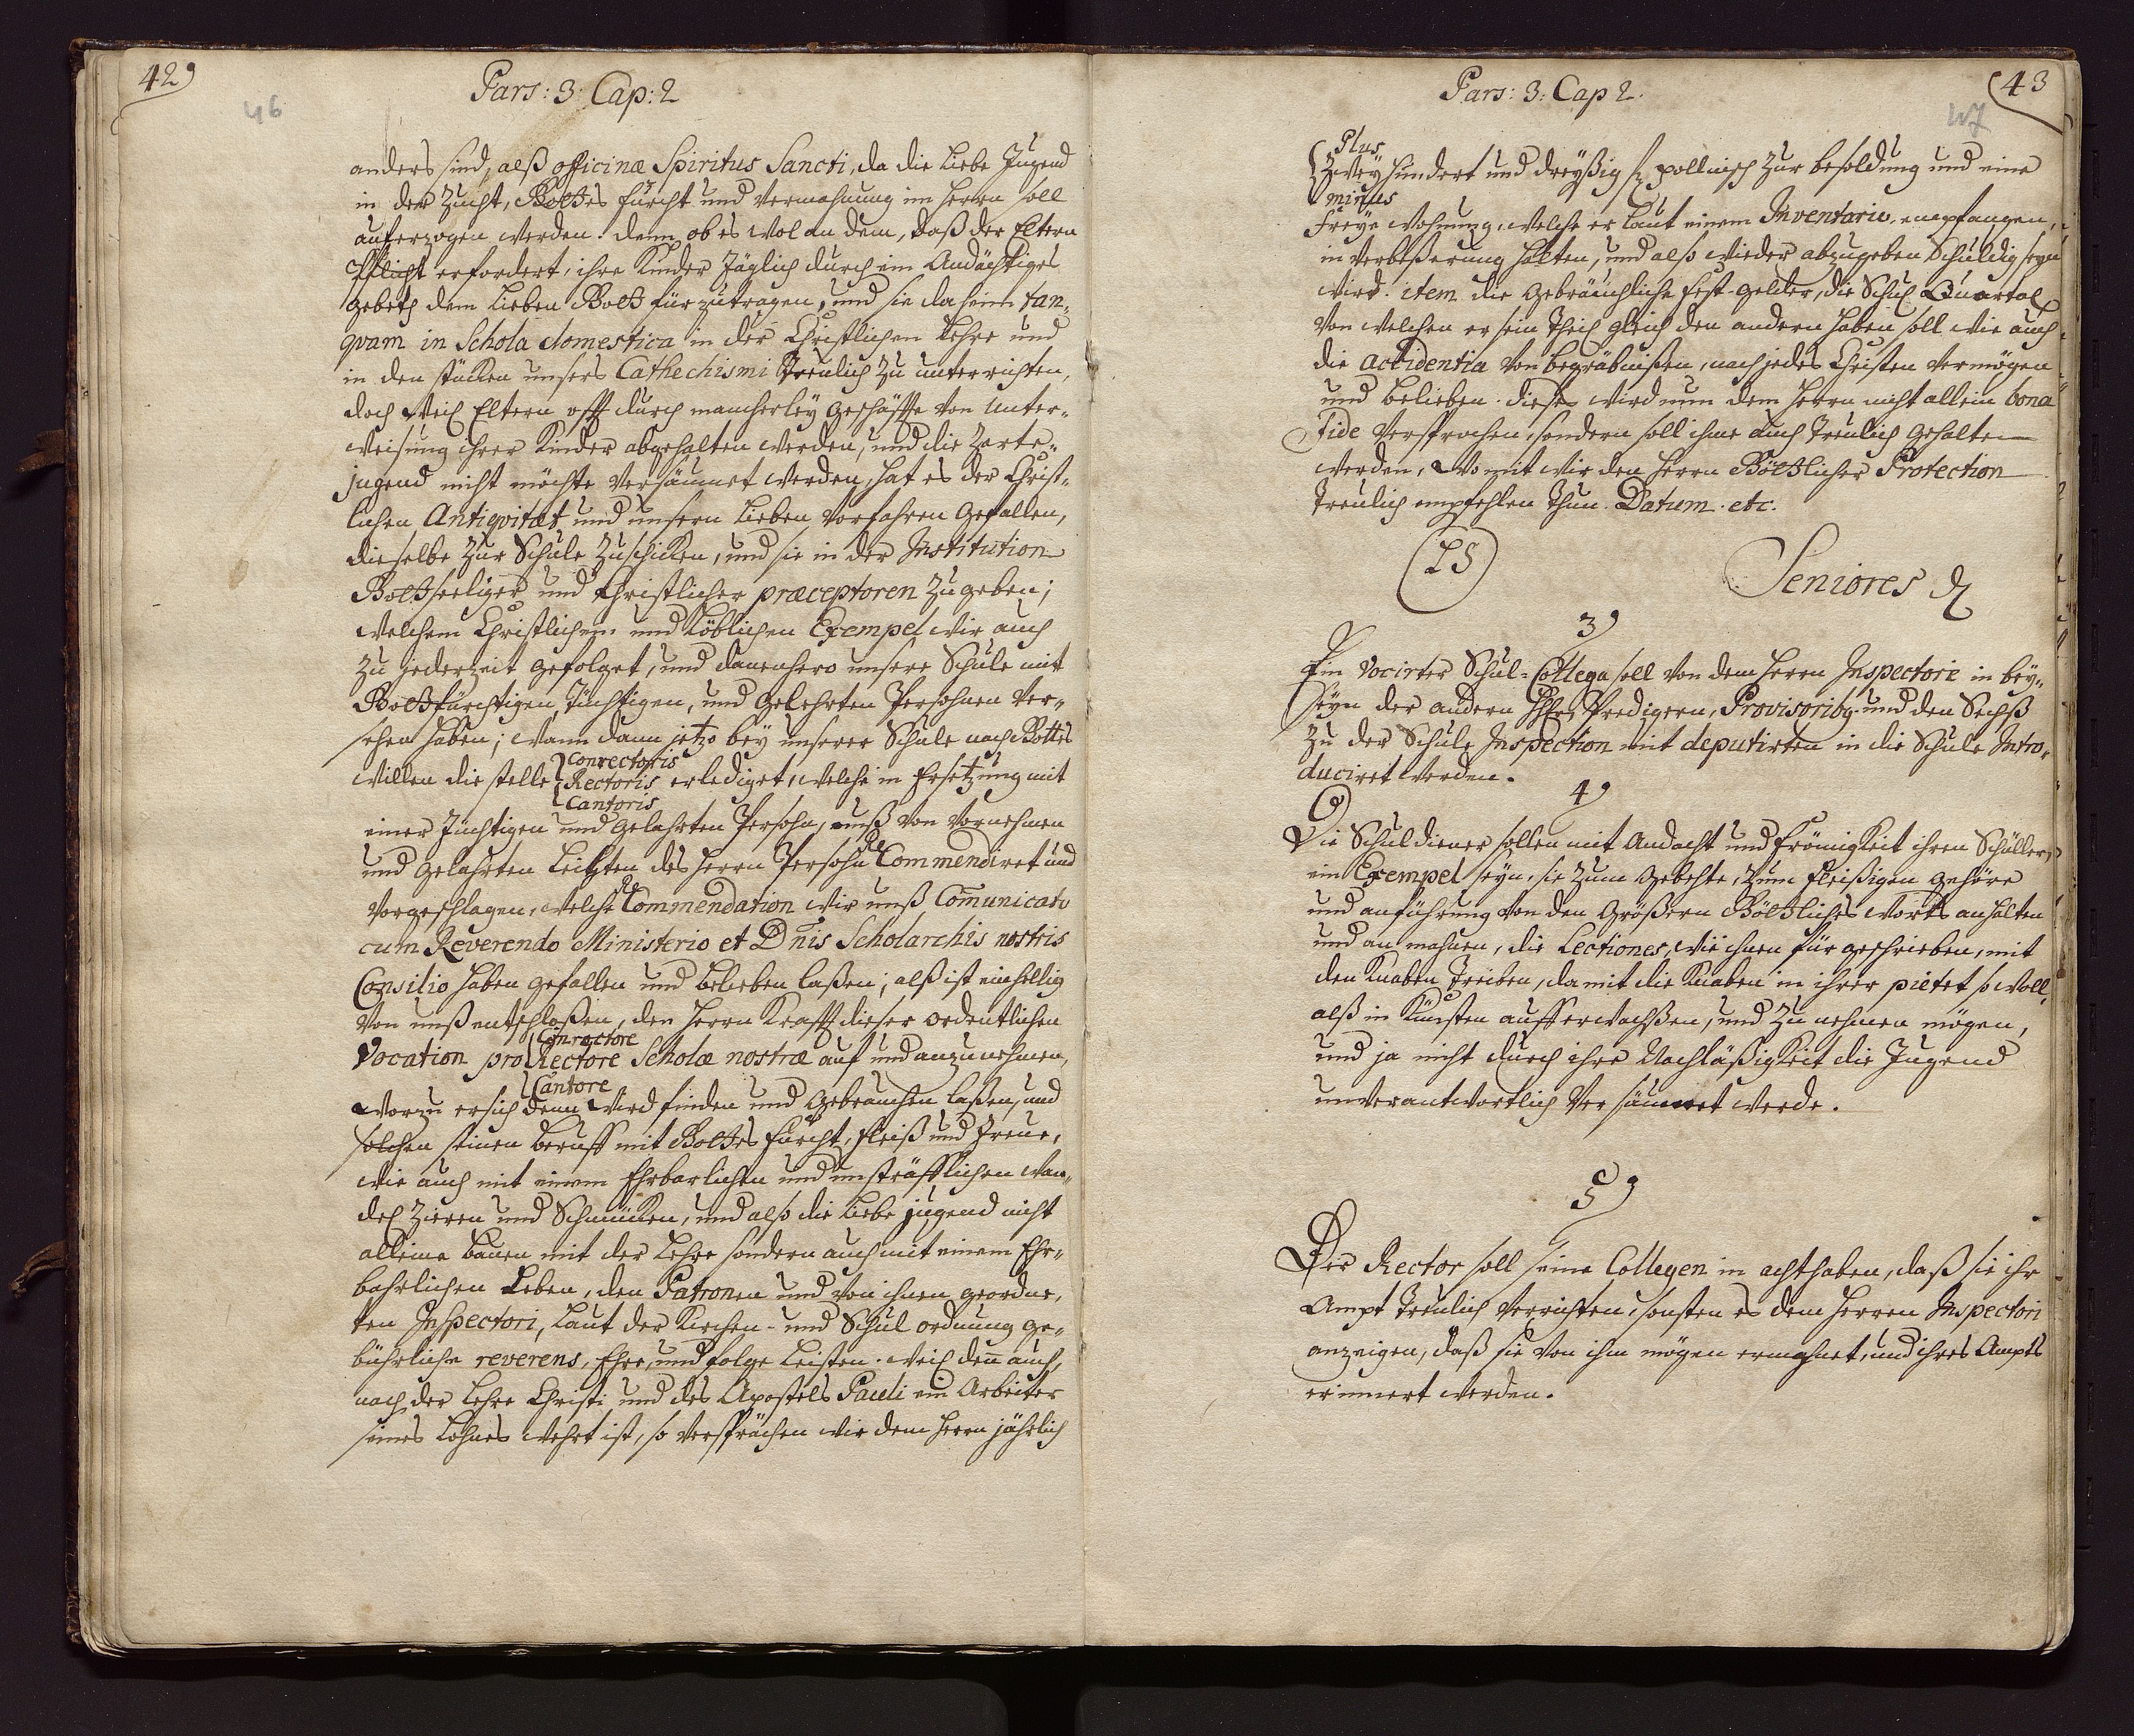 42)
46
Pars: 3: Cap: 2
anders sind, alß officinæ Spiritus Sancti, da die liebe Jugend
in der Zucht, Gottes furcht und Vermahnung im Herrn soll
auferzogen werden. denn ob es wol an dem, daß der Eltern
Pflicht erfordert, ihre Kinder täglich durch ein Andächtiges
gebeth dem lieben Gott fürzutragen, und sie daheim tan-
qvam in Schola domestica in der Christlichen Lehre und
in den stücken unsers Cathechismi Treulich zu unterrichten,
doch weil Eltern offt durch mancherley geschäffte von Unter-
weisung ihrer Kinder abgehalten werden, und die Zarte
jugend nicht möchte versäumet werden, hat es der Christ-
lichen Antiqvität und unsern lieben Vorfahren gefallen,
dieselbe zur Schule zuschicken, und sie in der Institution
Gottseeliger und Christlicher præceptoren zugeben;
welchem Christlichen und Löblichen Exempel wir auch
zu jederzeit gefolget, und danenhero unsere Schule mit
Gottfürchtigen, tüchtigen, und gelehrten Persohnen ver-
sehen haben; Wann dann jetzo bey unserer Schule nach Gottes
Conrectoris
willen die stelle Rectoris erlediget, welche in Ersetzung mit
Cantoris
einer tüchtigen und gelahrten Persohn, unß von Vornehmen
und gelahrten Leuten des Herrn Persohn ReCommendiret und
vorgeschlagen, welche ReCommendation wir unß Comunicato
cum Reverendo Ministerio et Dnis Scholarchis nostris
Consilio haben gefallen und belieben laßen; alß ist einhellig
von unß entschloßen, den Herrn Krafft dieser ordentlichen
Conrectore
Vocation pro Rectore Scholæ nostræ auf und anzunehmen,
Cantore
Worzu er sich denn wird finden und gebrauchen laßen, und
solchen seinen beruff mit Gottes furcht, fleiß und Treue,
wie auch mit einem Ehrbarlichen und unsträfflichen Wan-
del zieren und Schmücken, und also die liebe jugend nicht
alleine bauen mit der Lehre sondern auch mit einem Ehr-
bahrlichen Leben, den Patronen und von ihnen geordne-
ten Inspectori, Laut der Kirchen- und Schul ordnung ge-
bührliche reverens, Ehre, und folge leisten. Weil deñ auch,
nach der Lehre Christi und des Apostels Pauli ein Arbeiter
seines Lohnes wehrt ist, so versprächen wir dem Herrn jährlich
(43
47
Pars: 3: Cap 2.
Plus
Zwey hundert und dreyßig fl pollnisch zur besoldung und eine
minus
Freye Wohnung, welche er laut einem Inventario, empfangen,
in verbeßerung halten, und also wieder abzugeben schuldig seyn
wird. item die gebräuchliche Fest-gelder, die Schul Quartal
von welchen er sein Theil gleich den andern haben soll wie auch
die accidentia von begräbnißen, nach jedes Christen vermögen
und belieben. dieses wird nun dem Herrn nicht allein bona
fide versprochen, sondern soll ihme auch Treulich gehalten
werden, Womit wir den Herrn Göttlicher Protection
Treulich empfehlen thun. Datum. etc.
(LS)
Seniores
3)
Ein vocirter Schul-Collega soll von dem Herrn Inspectore in bey-
seyn der andern HHrn Predigern, Provisoribq. und den Sechß
zu der Schule Inspection mit deputirten in die Schule Intro-
duciret werden.
4)
Die Schuldiener sollen mit Andacht und frömigkeit ihren Schüllern
ein Exempel seyn, sie zum gebehte, zum fleißigen gehöre
und anführung von den größern Göttliches Worts anhalten
und an mahnen, die Lectiones, wie ihnen fürgeschrieben, mit
den Knaben treiben, damit die Knaben in ihrer pietet so woll,
alß in Künsten aufferwachßen, und zu nehmen mögen,
und ja nicht durch ihre Nachläßigkeit die Jugend
unverantwortlich versäumet werde.
5)
Der Rector soll seine Collegen in acht haben, daß sie ihr
Ampt treulich verrichten, sonsten es dem Herren Inspectori
anzeigen, daß sie von ihm mögen ermahnet, und ihres Ampts
erinnert werden.